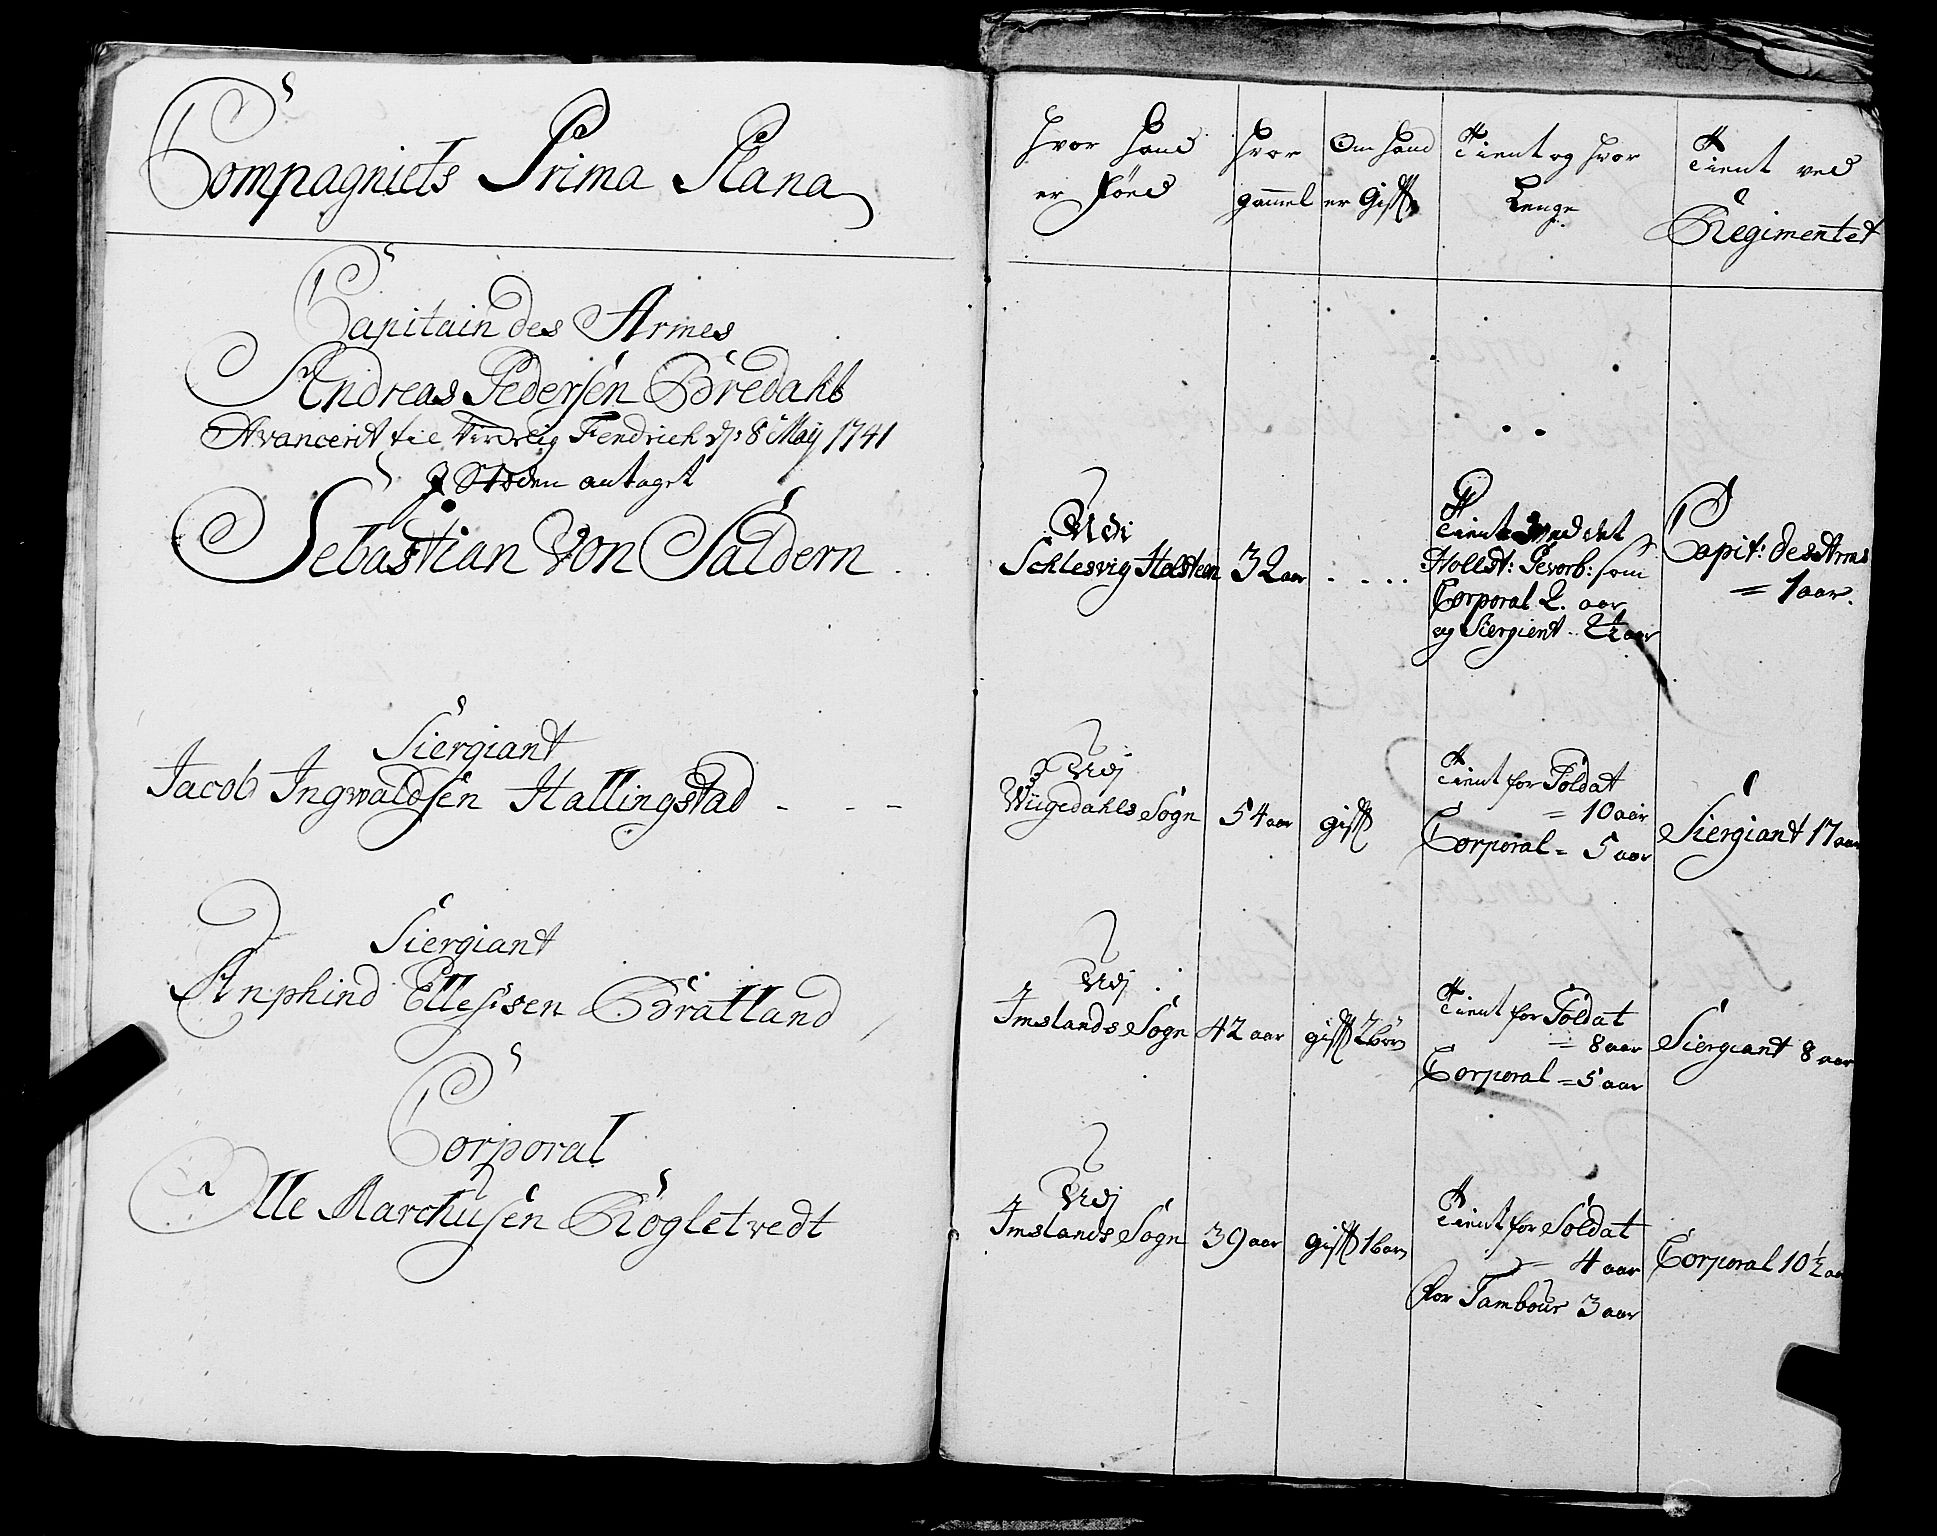 Compagniets Prima Plana
Capitain des Armes
Andreas Pedersen Bredahl
Avancerit til Fendrich d: 8 Maij 1741
J Stæden antaget
Sebastian Von Saldern
Siergiant
Jacob Ingwaldsen Hallingstad
Siergiant
Anphind Ellefsen Bratland
Corporal
Olle Marchusen Rögletvedt
Hvor Hand
er Föed
Hvor
gammel
Om Hand
er Gifft
Tient og hvor
Lenge
Tient ved
Regimentet
Udi
Schlesvig Holsteen
32 aar
Tient ved det
Hollst: Gevorb: som
Corporal 2. aar
og Siergient 2½ aar
Capit: des Arms
= 1 aar.
Udj
Wiigedahls Sogn
54 aar
gifft
Tient for Soldat
= 10 aar
Corporal = 5 aar
Siergiant 17 aar
Udj
Imslands Sogn
42 aar
gifft 2 börn
Tient for Soldat
= 8 aar
Corporal = 5 aar
Siergiant 8 aar
Udj
Imslands Sogn
39 aar
gifft 1 barn
Tient for Soldat
= 4 aar
for Tambour 3 aar
Corporal 10½ aar